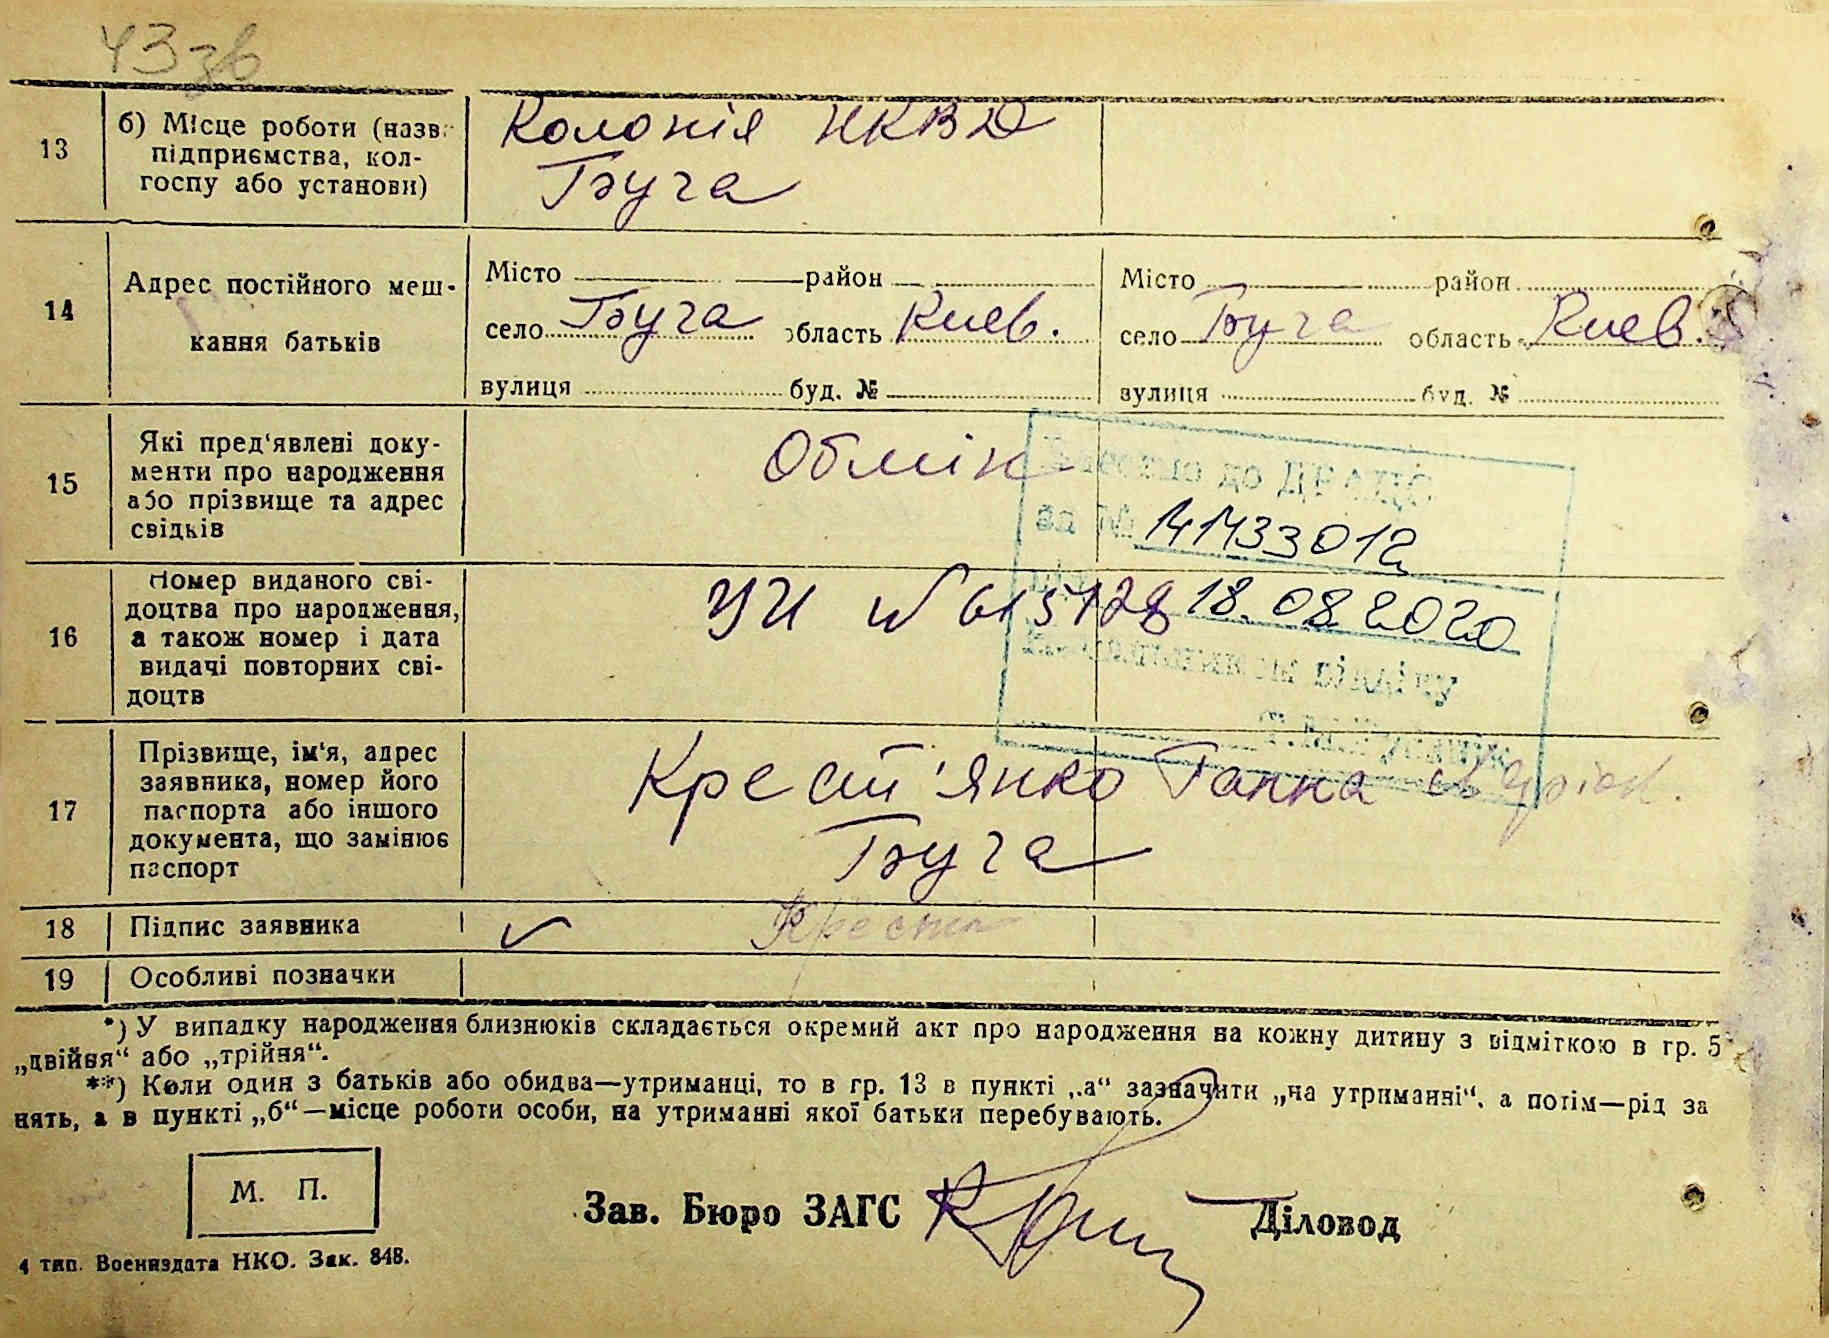 43зв
13 б) Місце роботи (назв. підприємства, колгоспу або установи)
Колонія НКВД
Буча
14 Адрес постійного мешкання батьків
Місто район
село Буча область Киев.
вулиця буд. №
Місто район
село Буча область Киев.
вулиця буд. №
15 Які пред'явлені документи про народження або прізвище та адрес свідків
Обмін
41433012
16 Номер виданого свідоцтва про народження, а також номер і дата видачі повторних свідоцтв
УИ № 615128
18.08.2020
17 Прізвище, ім'я, адрес заявника, номер його паспорта або іншого документа, що замінює паспорт
Крест'янко Ганна
Буча
18 Підпис заявника
Крестя
19 Особливі позначки
*) У випадку народження близнюків складається окремий акт про народження на кожну дитину з відміткою в гр. 5
„двійня“ або „трійня“.
**) Коли один з батьків або обидва—утриманці, то в гр. 13 в пункті „а“ зазначити „на утриманні“, а потім—рід за
нять, а в пункті „б“—місце роботи особи, на утриманні якої батьки перебувають.
М. П.
Зав. Бюро ЗАГС
Діловод
4 тип. Воениздата НКО. Зак. 848.